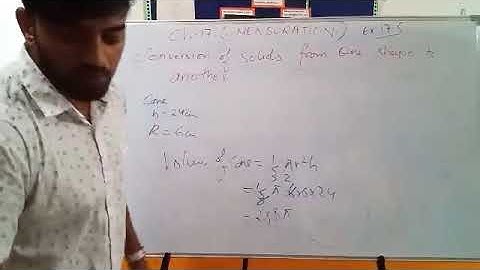 Ch-17 (MENSURATION) Ex 17.5
Conversion of solids from one shape to
another
Cone
h = 24cm
R = 6cm
Volume of Cone = 1/3 πr²h
= 1/3 π 6x6x24
π